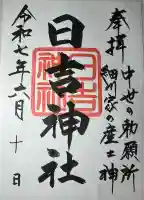 奉拝
中世の勅願所
細川家の産土神
日吉神社
令和七年六月十日